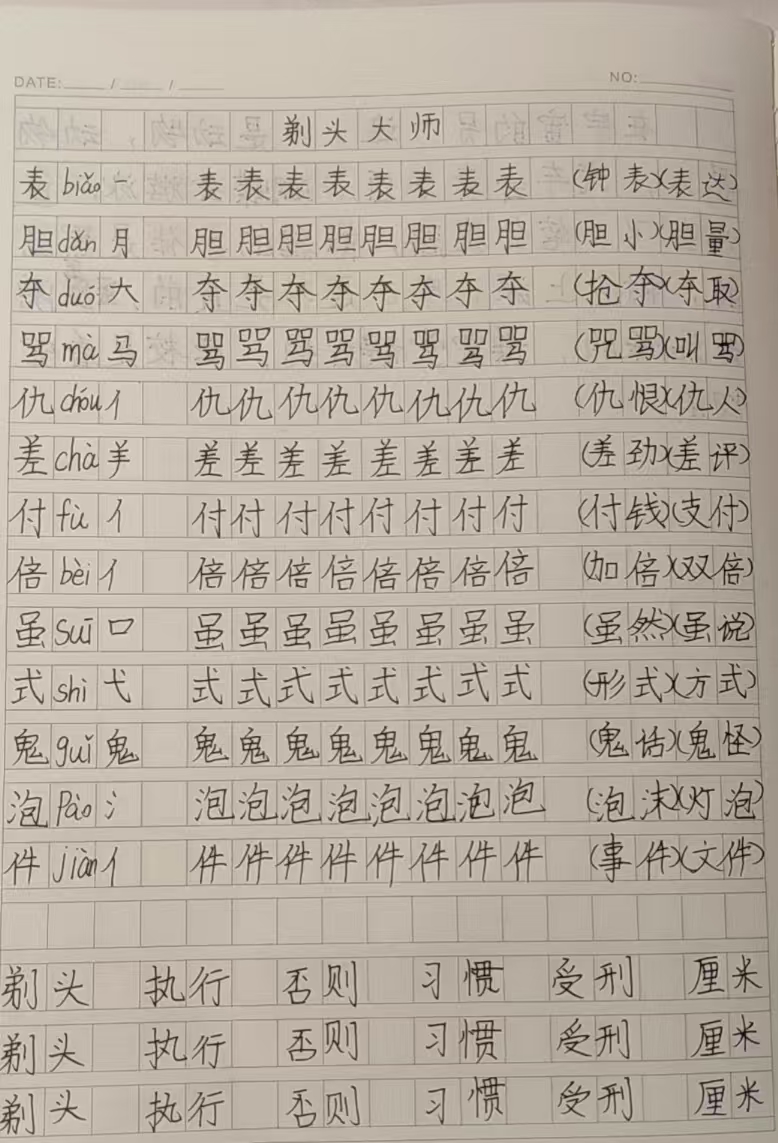 DATE: / / NO:
剃头大师
表 biǎo 一 表表表表表表表表 (钟表)(表达)
胆 dǎn 月 胆胆胆胆胆胆胆胆 (胆小)(胆量)
夺 duó 大 夺夺夺夺夺夺夺夺 (抢夺)(夺取)
骂 mà 马 骂骂骂骂骂骂骂骂 (咒骂)(叫骂)
仇 chóu 亻 仇仇仇仇仇仇仇仇 (仇恨)(仇人)
差 chà 羊 差差差差差差差差 (差劲)(差评)
付 fù 亻 付付付付付付付付 (付钱)(支付)
倍 bèi 亻 倍倍倍倍倍倍倍倍 (加倍)(双倍)
虽 suī 口 虽虽虽虽虽虽虽虽 (虽然)(虽说)
式 shì 弋 式式式式式式式式 (形式)(方式)
鬼 guǐ 鬼 鬼鬼鬼鬼鬼鬼鬼鬼 (鬼话)(鬼怪)
泡 pào 氵 泡泡泡泡泡泡泡泡 (泡沫)(灯泡)
件 jiàn 亻 件件件件件件件件 (事件)(文件)
剃头 执行 否则 习惯 受刑 厘米
剃头 执行 否则 习惯 受刑 厘米
剃头 执行 否则 习惯 受刑 厘米